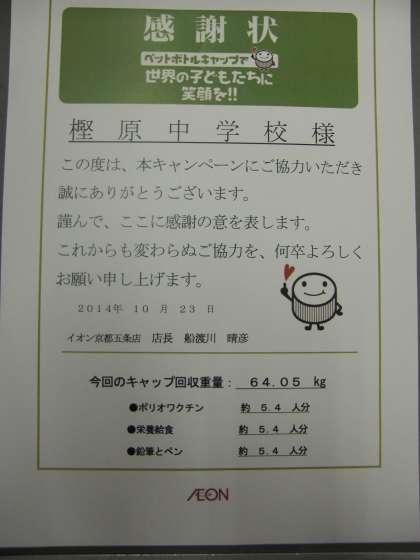 感謝状
ペットボトルキャップで
世界の子どもたちに
笑顔を!!
樫原中学校様
この度は、本キャンペーンにご協力いただき
誠にありがとうございます。
謹んで、ここに感謝の意を表します。
これからも変わらぬご協力を、何卒よろしく
お願い申し上げます。
2014年 10 月 23 日
イオン京都五条店 店長 船渡川 晴彦
今回のキャップ回収重量: 64.05 kg
●ポリオワクチン 約 5.4 人分
●栄養給食 約 5.4 人分
●鉛筆とペン 約 5.4 人分
ÆON